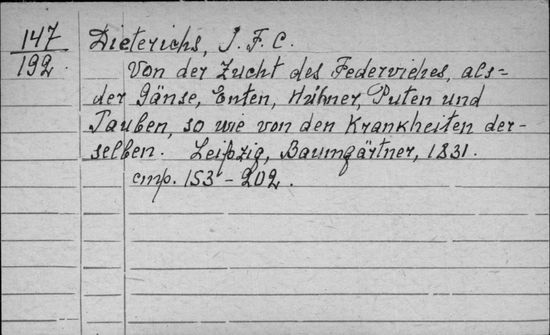 147
192.
Dieterichs, J. F. C.
Von der Zucht des Federviehes, als=
der Gänse, Enten, Hühner, Puten und
Tauben, so wie von den Krankheiten der-
selben. Leipzig, Baumgärtner, 1831.
стр. 153-202.